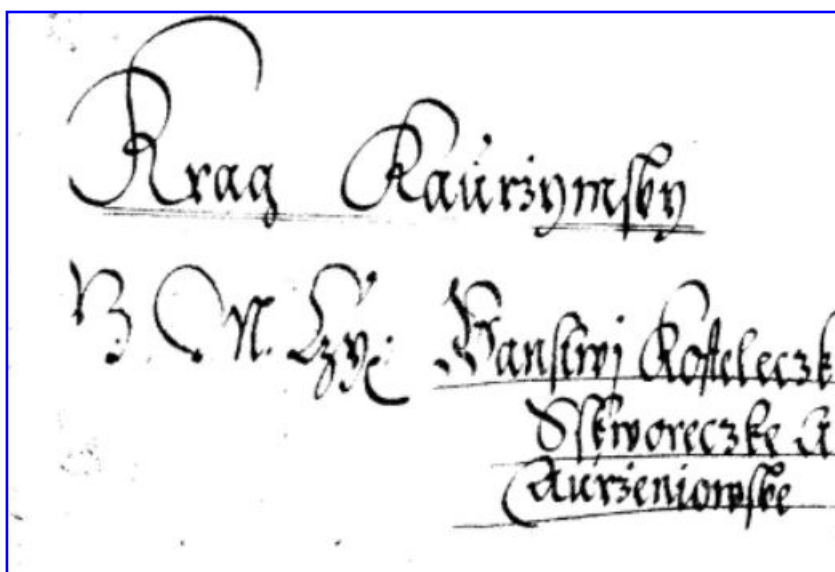 Krag Kaurzymsky
B. N. Panstwj Kosteleczk
Skworeczke A
Aurzeniowske